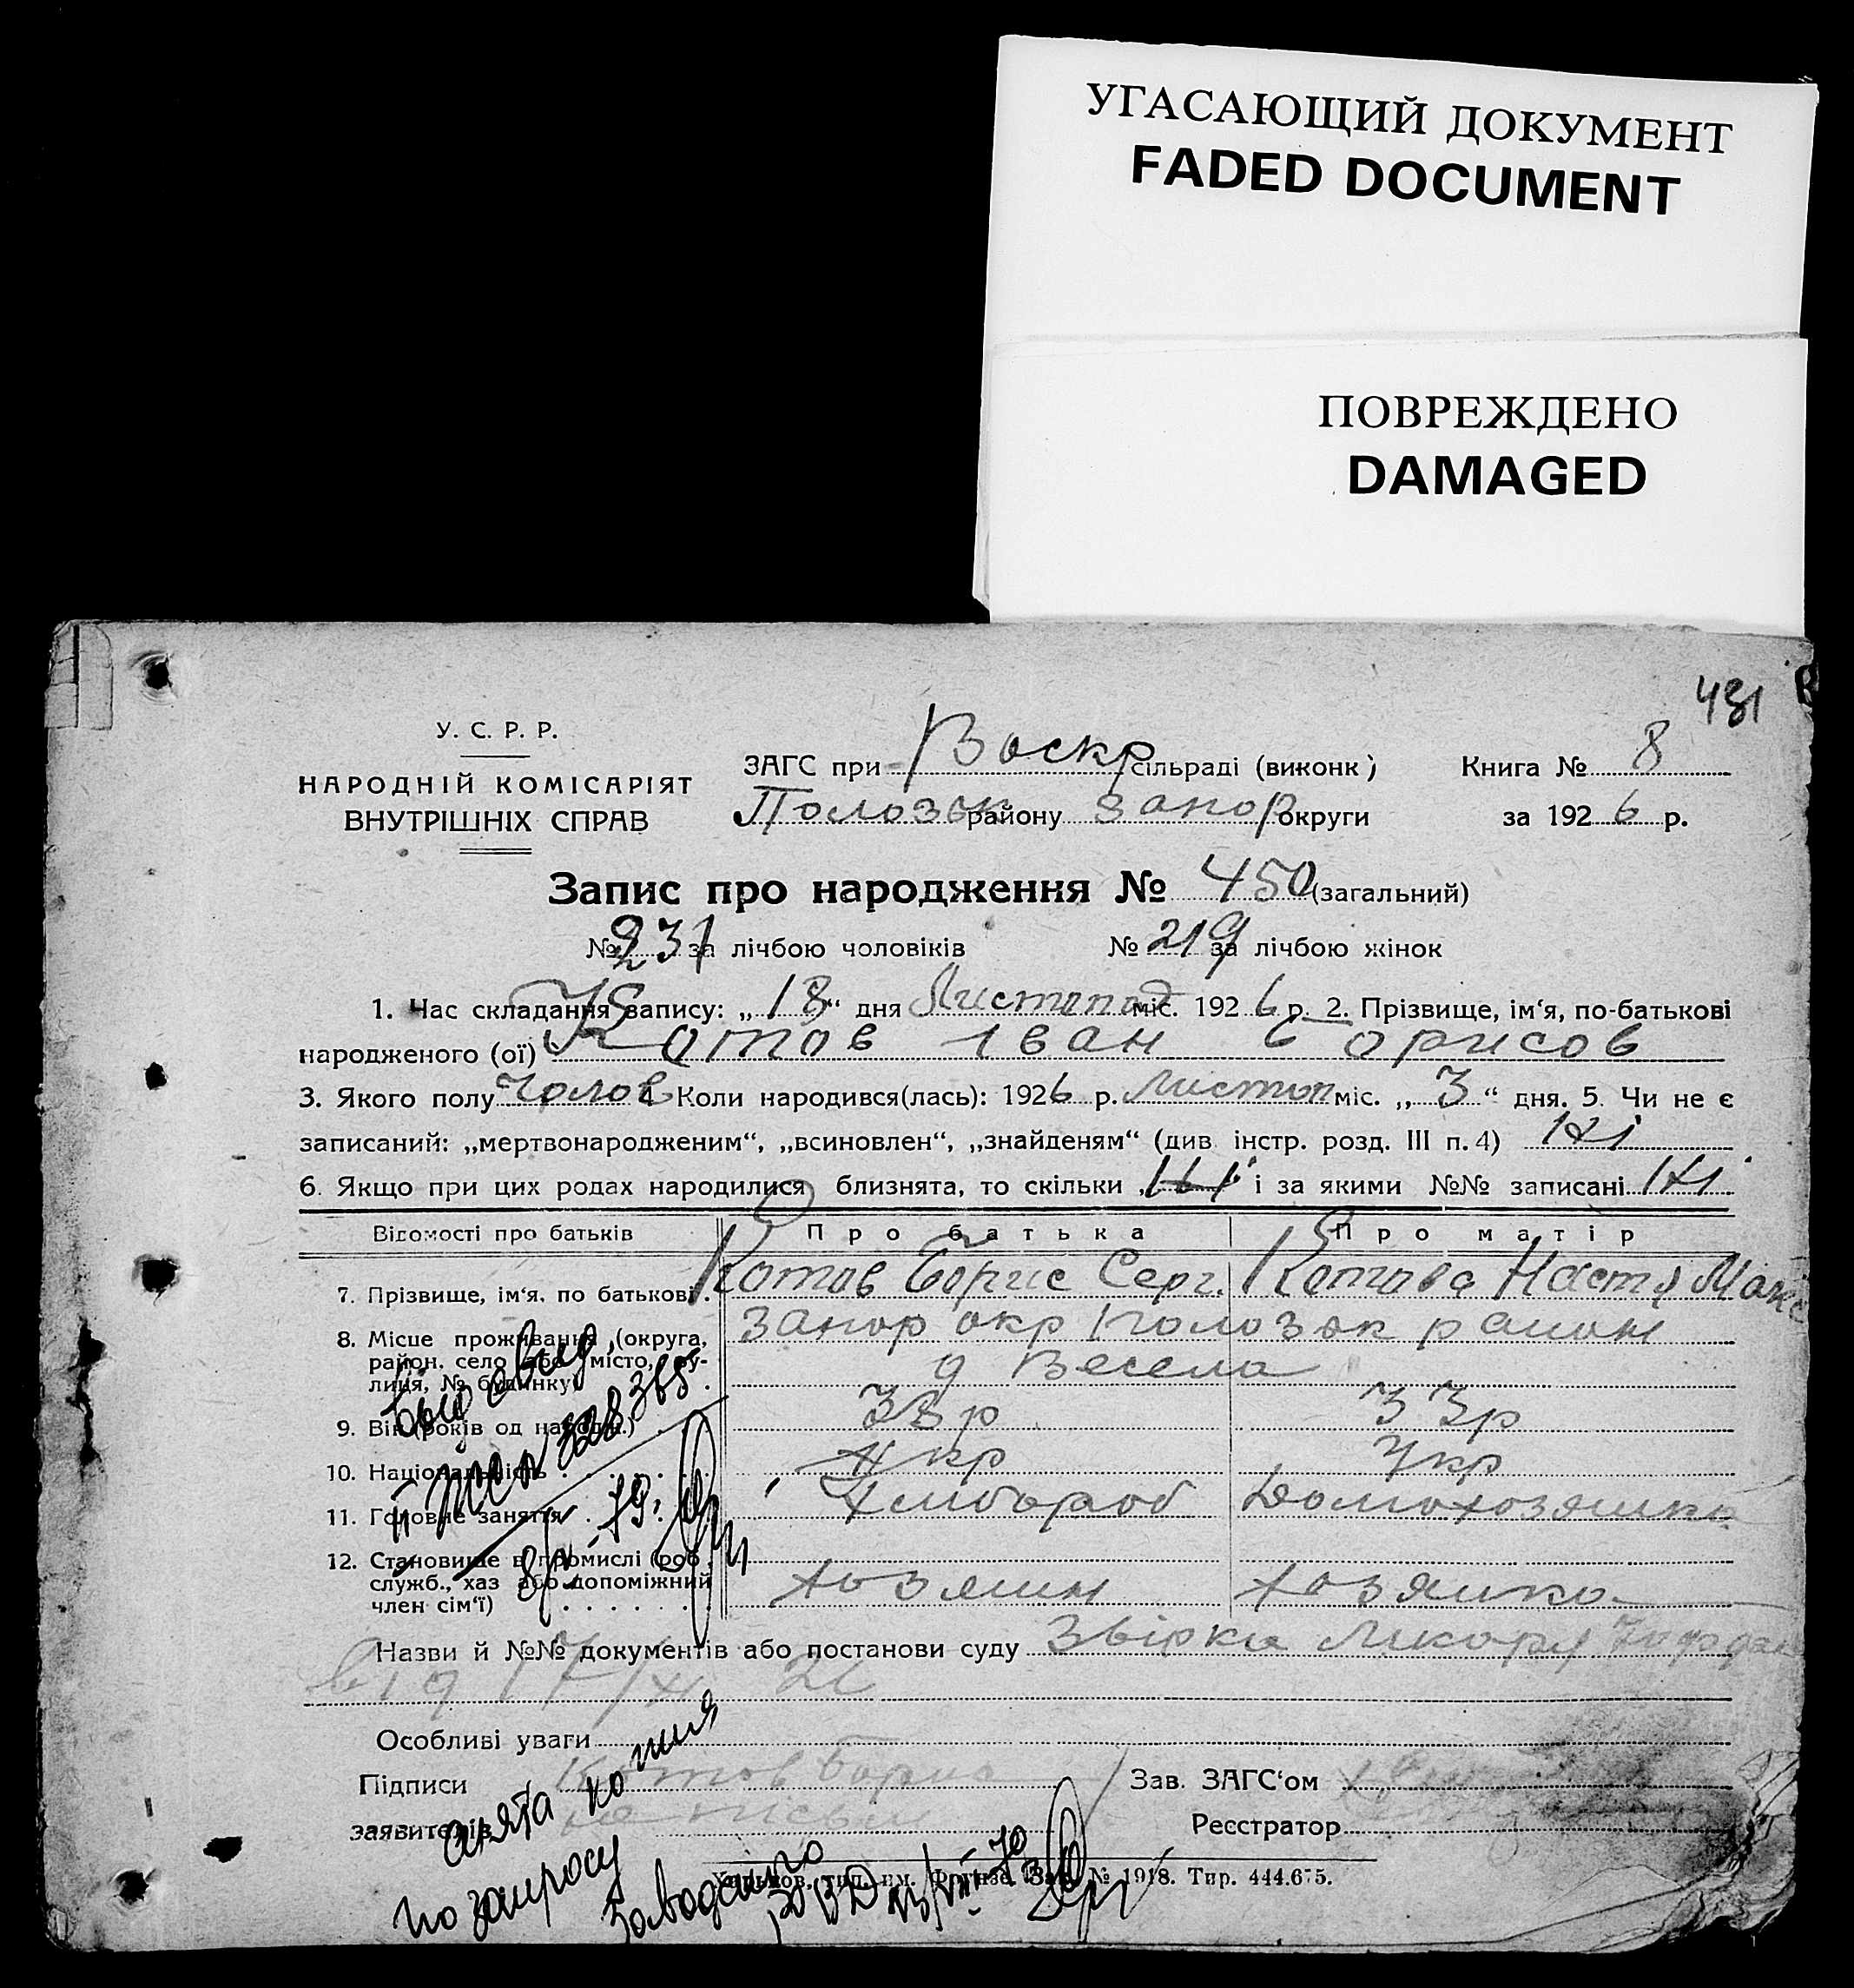 УГАСАЮЩИЙ ДОКУМЕНТ
FADED DOCUMENT
ПОВРЕЖДЕНО
DAMAGED
431
У. С. Р. Р.
НАРОДНІЙ КОМІСАРІЯТ
ВНУТРІШНІХ СПРАВ
ЗАГС при Воскр сільраді (виконк)
Полозьк району Запор округи
Книга № 8
за 1926 р.
Запис про народження № 450 (загальний)
№ 231 за лічбою чоловіків № 219 за лічбою жінок
1. Час складання запису: „18“ дня Листопад міс. 1926 р. 2. Прізвище, ім‘я, по-батькові
народженого (ої) Котов Іван Борисов
3. Якого полу Чолов 4. Коли народився(лась): 1926 р. Листоп міс. „3“ дня. 5. Чи не є
записаний: „мертвонародженим“, „всиновлен“, „знайденям“ (див. інстр. розд. III п. 4) Ні
6. Якщо при цих родах народилися близнята, то скільки Ні і за якими №№ записані Ні
Відомості про батьків Про батька Про матір
7. Прізвище, ім‘я, по батькові . Котов Борис Серг. Котова Настя Макс
8. Місце проживання (округа, Запор окр Полозьк район
район, село або місто, ву-
лиця, № будинку) . д Весела
9. Вік (років од народж.) 38 р 33 р
10. Національність Укр Укр
11. Головне заняття Хлібороб Домохозяшка
12. Становище в промислі (роб.,
служб., хаз або допоміжний
член сім‘ї) хозяин хозяшка
Назви й №№ документів або постанови суду
Особливі уваги
Підписи Котов Борис Зав. ЗАГС‘ом
заявителів Реєстратор
Харьков, тип. им. Фрунзе. Зак. № 1918. Тир. 444.675.
выд свид
8/X-79.
снята копия
по запросу
Заводского
РВД